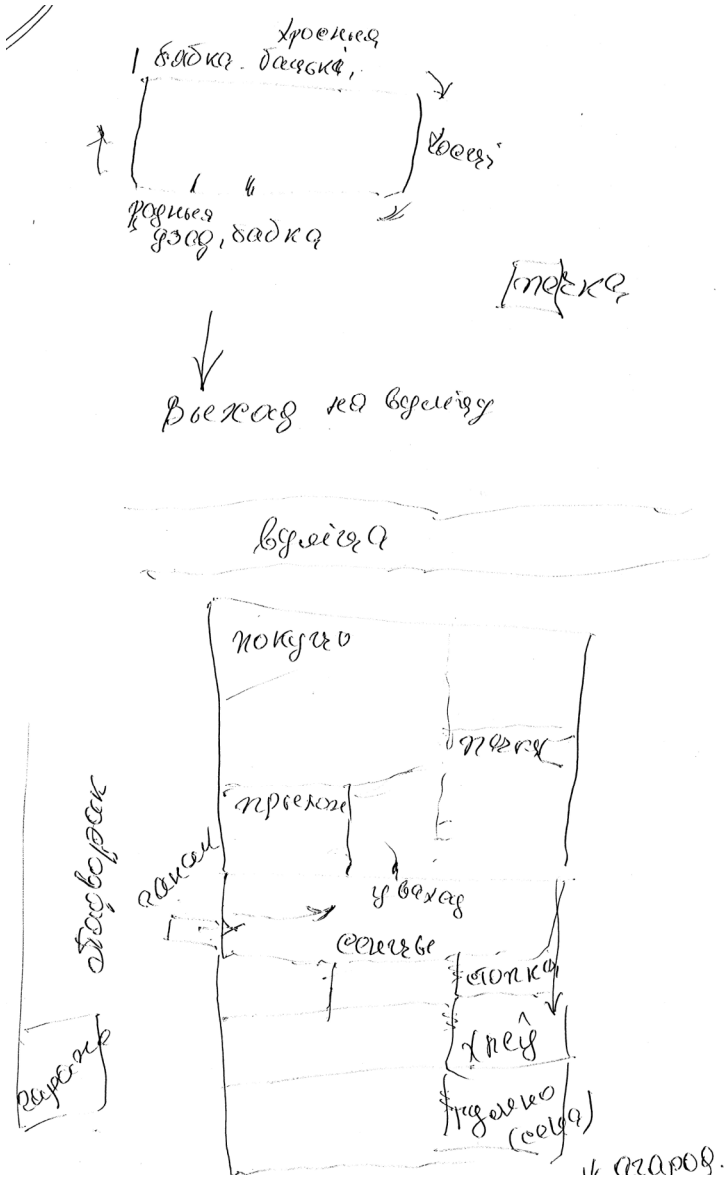 хросныя
бабка. бацькі,
госці
родныя
дзед, бабка
печка
Выхад на вуліцу
вуліца
покуцьо
печка
падворак
ганак
уваход
сенцы
стопка
хлеў
гумно
(сена)
гараж
агарод.